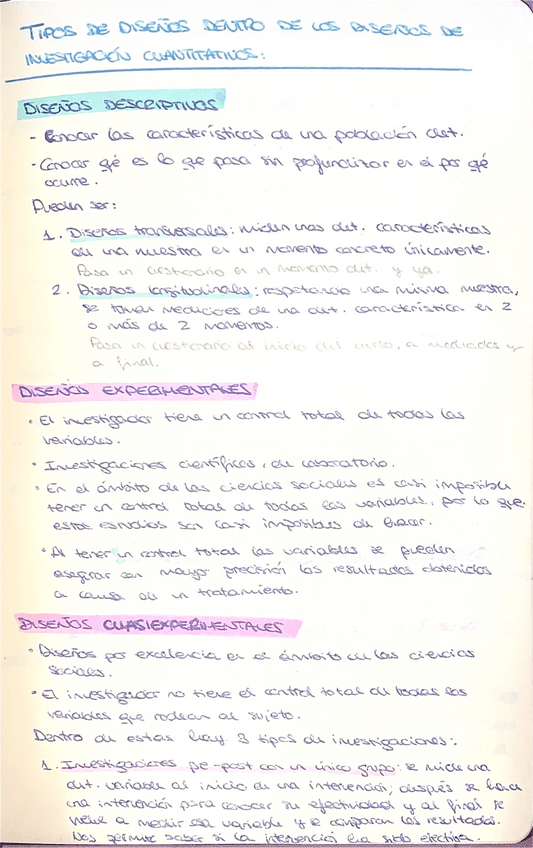 TIPOS DE DISEÑOS DENTRO DE LOS DISEÑOS DE
INVESTIGACIÓN CUANTITATIVOS:
DISEÑOS DESCRIPTIVOS
- Conocer las características de una población det.
- Conocer qé es lo que pasa sin profundizar en el por qé
ocurre.
Pueden ser:
1. Diseños transversales: miden unas det. características
de una muestra en un momento concreto únicamente.
Pasa un cuestionario en un momento det. y ya.
2. Diseños longitudinales: respetando una misma muestra,
se toman mediciones de una det. característica en 2
o más de 2 momentos.
Pasa un cuestionario al inicio del curso, a mediados y
a final.
DISEÑOS EXPERIMENTALES
· El investigador tiene un control total de todas las
variables.
· Investigaciones científicas, de laboratorio.
· En el ámbito de las ciencias sociales es casi imposible
tener un control total de todas las variables, por lo que
estos estudios son casi imposibles de hacer.
· Al tener un control total las variables se pueden
asegurar con mayor precisión los resultados obtenidos
a causa de un tratamiento.
DISEÑOS CUASIEXPERIMENTALES
· Diseños por excelencia en el ámbito de las ciencias
sociales.
· El investigador no tiene el control total de todas las
variables que rodean al sujeto.
Dentro de estas hay 3 tipos de investigaciones:
1. Investigaciones pre-post con un único grupo: se mide una
det. variable al inicio de una intervención, después se hace
una intervención para conocer su efectividad y al final se
vuelve a medir esa variable y se comparan los resultados.
Nos permite saber si la intervención ha sido efectiva.